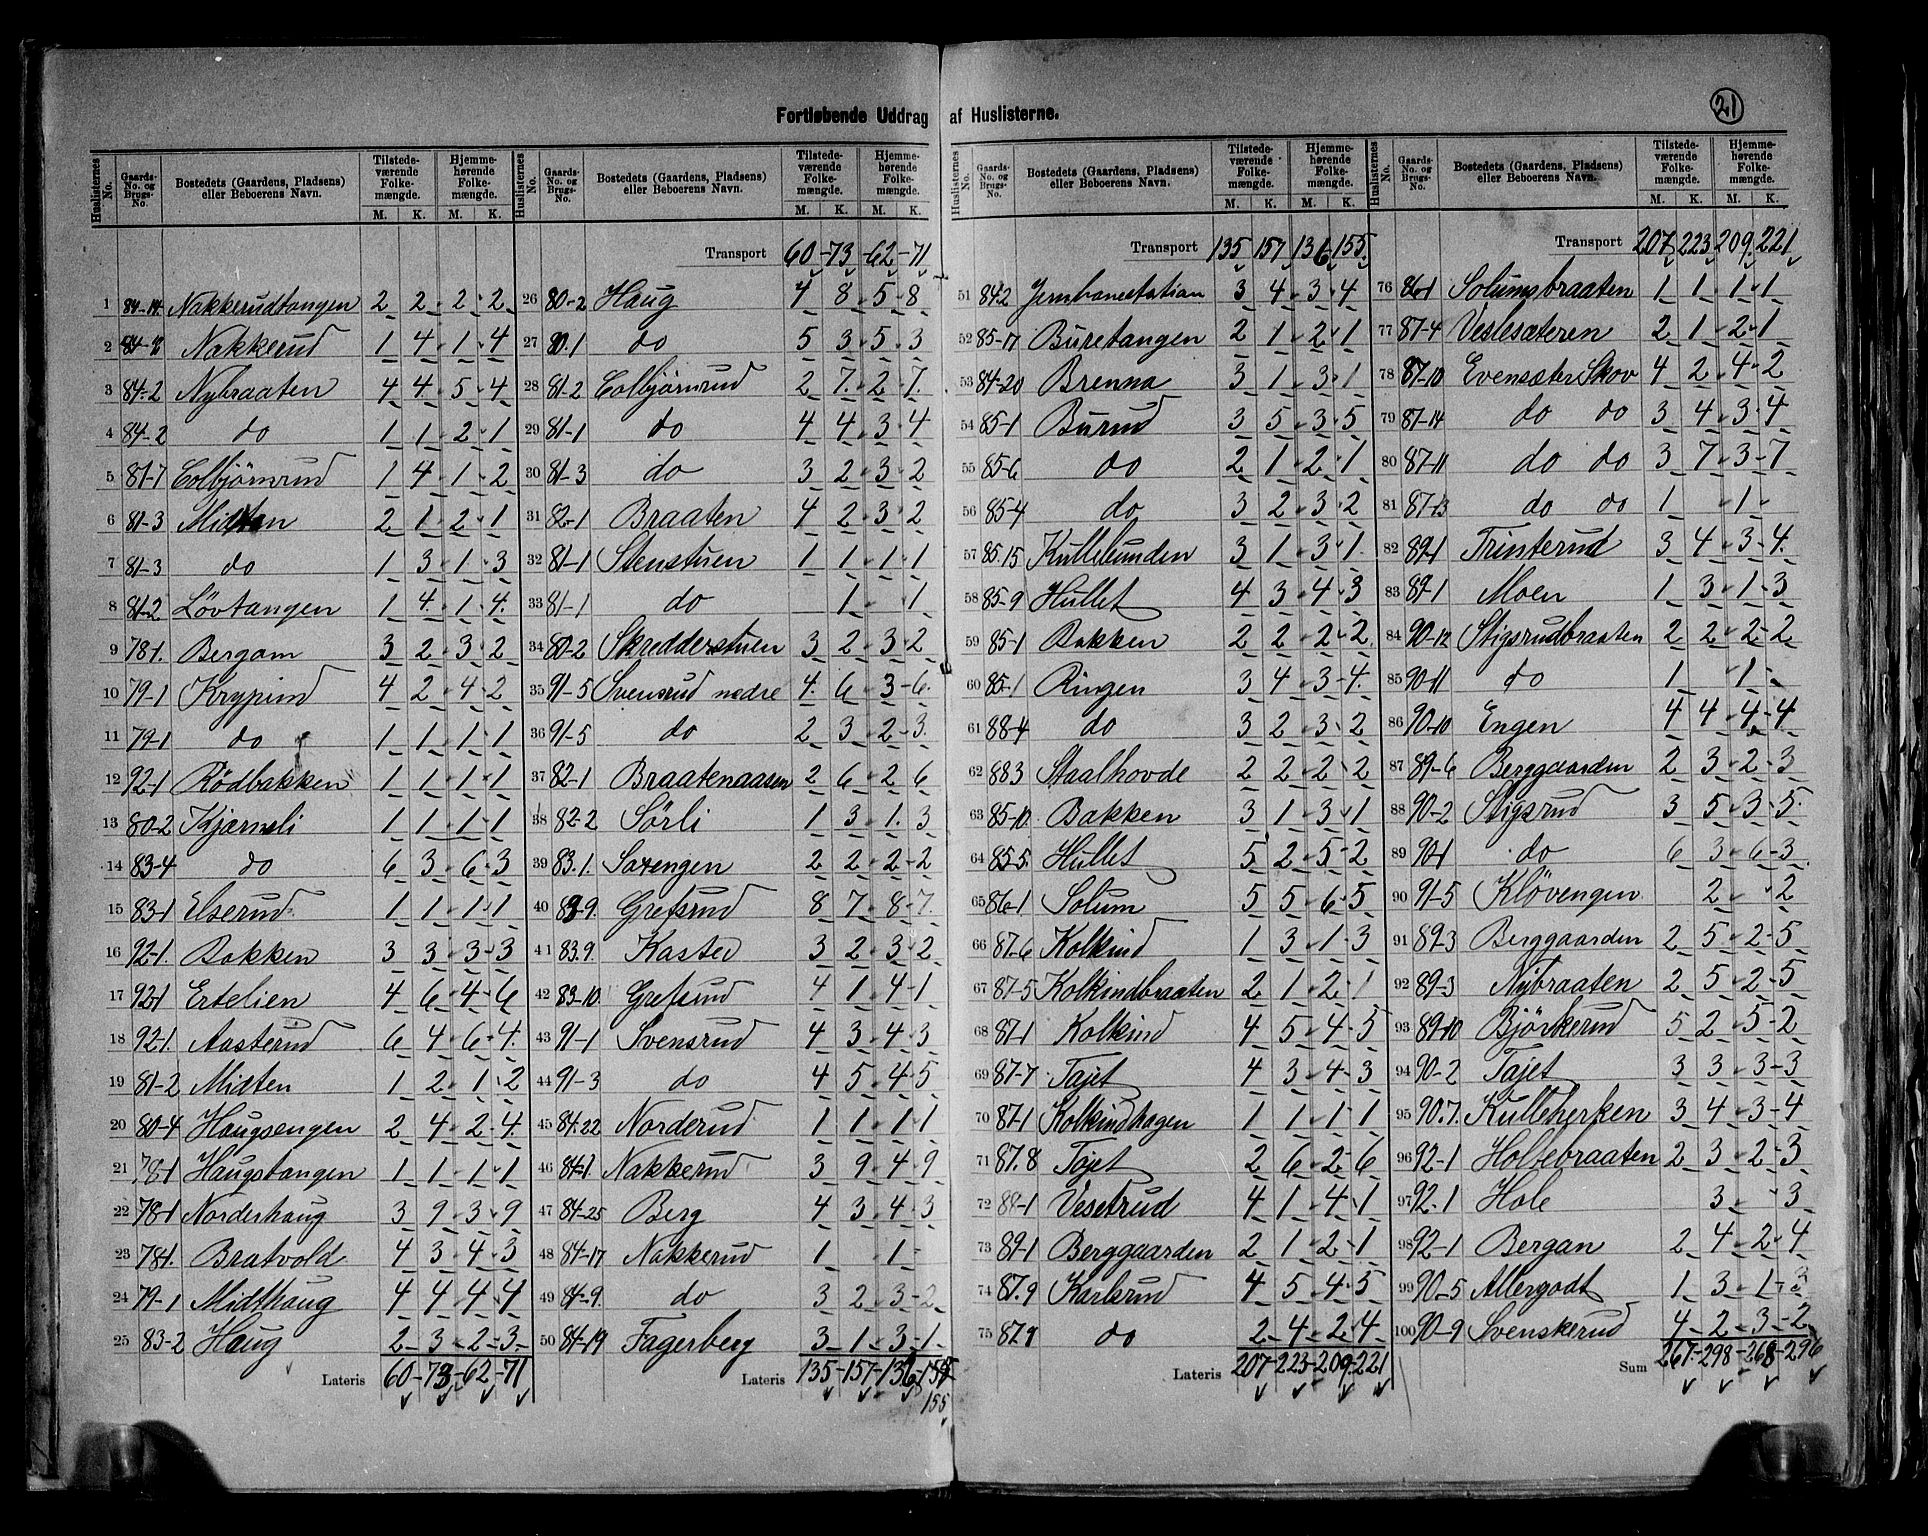 21
Fortløbende Uddrag af Huslisterne.
Huslisternes No. Gaards-No. og Brugs-No. Bostedets (Gaardens, Pladsens) eller Beboerens Navn. Tilstedeværende Folkemængde. Hjemmehørende Folkemængde.
M. K. M. K.
1 84-14 Nakkerudtangen 2 2 2 2
2 84- Nakkerud 1 4 1 4
3 84-2 Nybraaten 4 4 5 4
4 84-2 do 1 1 2 1
5 81-7 Colbjörnrud 1 4 1 2
6 81-3 Midten 2 1 2 1
7 81-3 do 1 3 1 3
8 81-2 Lövtangen 1 4 1 4
9 78-1 Bergam 3 2 3 2
10 79-1 Krypind 4 2 4 2
11 79-1 do 1 1 1 1
12 92-1 Rödbakken 1 1 1 1
13 80-2 Kjærnsli 1 1 1 1
14 83-4 do 6 3 6 3
15 83-1 Elserud 1 1 1 1
16 92-1 Bakken 3 3 3 3
17 92-1 Ertelien 4 6 4 6
18 92-1 Aasterud 6 4 6 4
19 81-2 Midten 1 2 1 2
20 80-4 Haugsengen 2 4 2 4
21 78-1 Haugstangen 1 1 1 1
22 78-1 Norderhaug 3 9 3 9
23 78-1 Bratvold 4 3 4 3
24 79-1 Midthaug 4 4 4 4
25 83-2 Haug 2 3 2 3
Lateris 60-73-62-71
Huslisternes No. Gaards-No. og Brugs-No. Bostedets (Gaardens, Pladsens) eller Beboerens Navn. Tilstedeværende Folkemængde. Hjemmehørende Folkemængde.
M. K. M. K.
Transport 60-73-62-71
26 80-2 Haug 4 8 5 8
27 80-1 do 5 3 5 3
28 81-2 Colbjörnrud 2 7 2 7
29 81-1 do 4 4 3 4
30 81-3 do 3 2 3 2
31 82-1 Braaten 4 2 3 2
32 81-1 Stenstuen 1 1 1 1
33 81-1 do 1 1
34 80-2 Skredderstuen 3 2 3 2
35 91-5 Svensrud nedre 4 6 3 6
36 91-5 do 2 3 2 3
37 82-1 Braatenaasen 2 6 2 6
38 82-2 Sörli 1 3 1 3
39 83.1. Saxengen 2 2 2 2
40 83-9. Grefsrud 8 7 8 7
41 83.9. Kasted 3 2 3 2
42 83-10. Grefsrud 4 1 4 1
43 91-1 Svensrud 4 3 4 3
44 91-3 do 4 5 4 5
45 84.22 Norderud 1 1 1 1
46 84-1. Nakkerud 3 9 4 9
47 84-25 Berg 4 3 4 3
48 84-17 Nakkerud 1 1
49 84-9. do 3 2 3 2
50 84-19 Fagerberg 3 1 3 1
Lateris 135-157-136-155
155
Huslisternes No. Gaards-No. og Brugs-No. Bostedets (Gaardens, Pladsens) eller Beboerens Navn. Tilstedeværende Folkemængde. Hjemmehørende Folkemængde.
M. K. M. K.
Transport 135 157 136 155
51 84-2 Jernbanestation 3 4 3 4
52 85-17 Buretangen 2 1 2 1
53 84-20 Brenna 3 1 3 1
54 85-1 Burud 3 5 3 5
55 85-6 do 2 1 2 1
56 85-4 do 3 2 3 2
57 85.15 Kullebunden 3 1 3 1
58 85-9 Hullet 4 3 4 3
59 85-1 Bakken 2 2 2 2
60 85-1 Ringen 3 4 3 4
61 88-4 do 3 2 3 2
62 88.3 Staalhovde 2 2 2 2
63 85-10. Bakken 3 1 3 1
64 85-5. Hullet 5 2 5 2
65 86-1 Solum 5 5 6 5
66 87-6 Kolkind 1 3 1 3
67 87-5 Kolkindbraaten 2 1 2 1
68 87-1 Kolkind 4 5 4 5
69 87-7 Tajet 4 3 4 3
70 87-1 Kolkindhagen 1 1 1 1
71 87.8 Tajet 2 6 2 6
72 84-1 Vesetrud 4 1 4 1
73 89-1 Berggaarden 2 1 2 1
74 87.9 Karlsrud 4 5 4 5
75 87.9 do 2 4 2 4
Lateris 207-223-209-221
Huslisternes No. Gaards-No. og Brugs-No. Bostedets (Gaardens, Pladsens) eller Beboerens Navn. Tilstedeværende Folkemængde. Hjemmehørende Folkemængde.
M. K. M. K.
Transport 207 223 209 221
76 86-1 Solumsbraaten 1 1 1 1
77 87-4 Veslesæteren 2 1 2 1
78 87-10 Evensæter Skov 4 2 4 2
79 87-14 do do 3 4 3 4
80 87-11 do do 3 7 3 7
81 87-13 do do 1 1
82 89-1 Trinterud 3 4 3 4
83 89-1 Moen 1 3 1 3
84 90-12 Stigsrudbraaten 2 2 2 2
85 90-11 do 1 1
86 90-10 Engen 4 4 4 4
87 89-6 Berggaarden 2 3 2 3
88 90-2 Stigsrud 3 5 3 5
89 90-1 do 6 3 6 3
90 91-5 Klövengen 2 2
91 89-3 Berggaarden 2 5 2 5
92 89-3 Nybraaten 2 5 2 5
93 89-10 Björkerud 5 2 5 2
94 90-2 Tajet 3 3 3 3
95 90.7. Kulleherken 3 4 3 4
96 92-1 Holebraaten 2 3 2 3
97 92.1 Hole 3 3
98 92-1 Bergan 2 4 2 4
99 90-5 Allergodt 1 3 1 3
100 90-9 Svenskerud 4 2 3 2
Sum 267-298-268-296